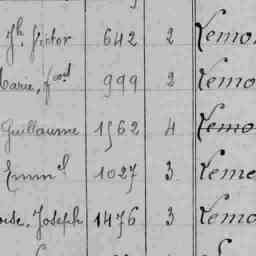 Jh. Victor 642 2 Lemo
Marie, fcoise 999 2 Lemo
Guillaume 1562 4 Lemo
Emm.l 1027 3 Leme
Joseph 1476 3 Lemo